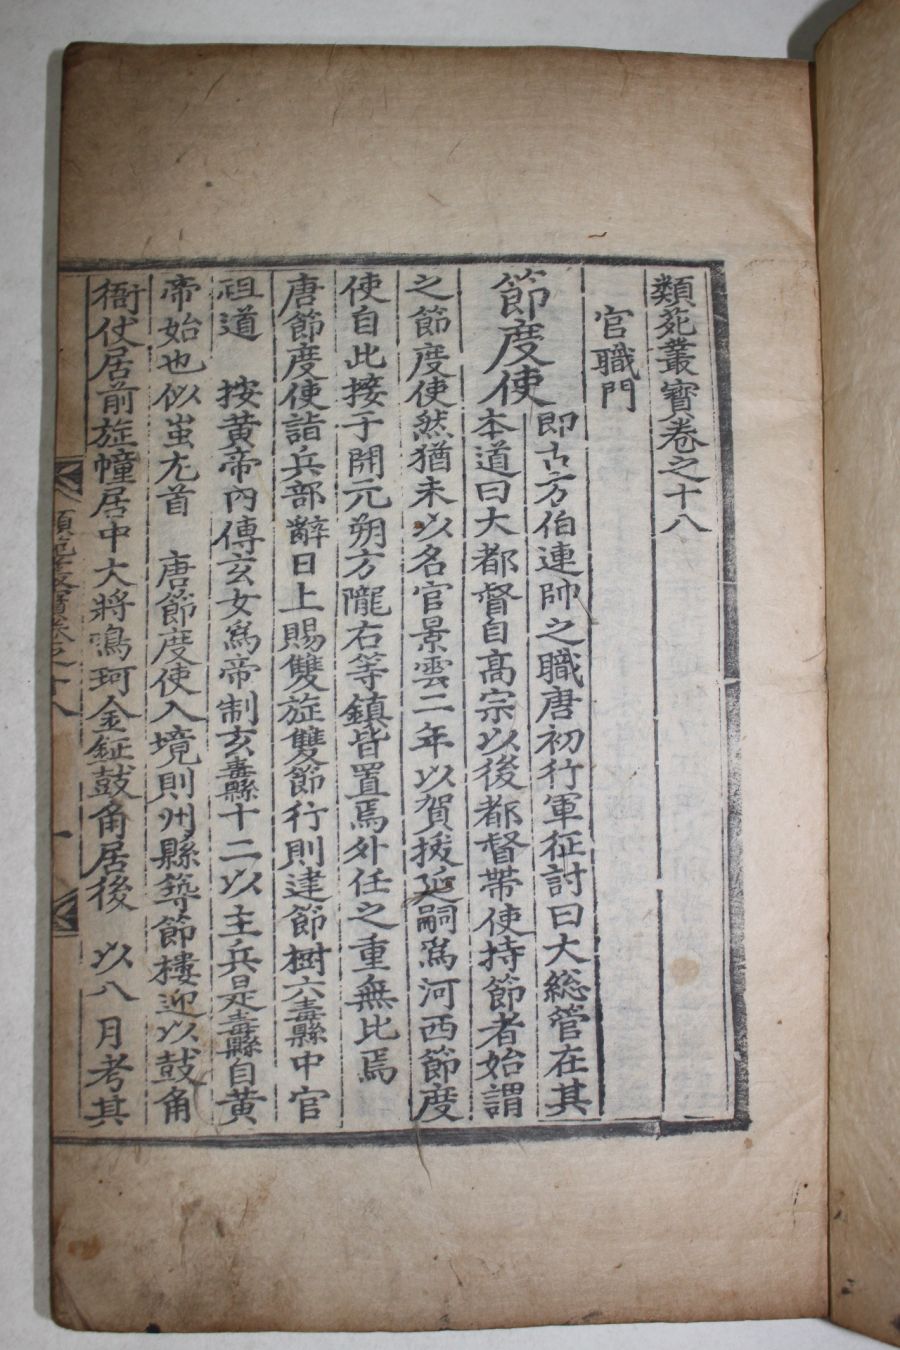 類苑叢寶卷之十八
官職門
節度使
即古方伯連帥之職唐初行軍征討曰大総管在其
本道曰大都督自高宗以後都督帶使持節者始謂
之節度使然猶未以名官景雲二年以賀拔延嗣爲河西節度
使自此接于開元朔方隴右等鎮皆置焉外任之重無比焉
唐節度使詣兵部辭日上賜雙旌雙節行則建節樹六纛中官
祖道 按黄帝內傳玄女爲帝制玄纛十二以主兵是纛自黄
帝始也似蚩尤首 唐節度使入境則州縣築節樓迎以鼓角
衙仗居前旌幢居中大將鳴珂金鉦鼓角居後 以八月考其
類苑叢寶卷之十八 一